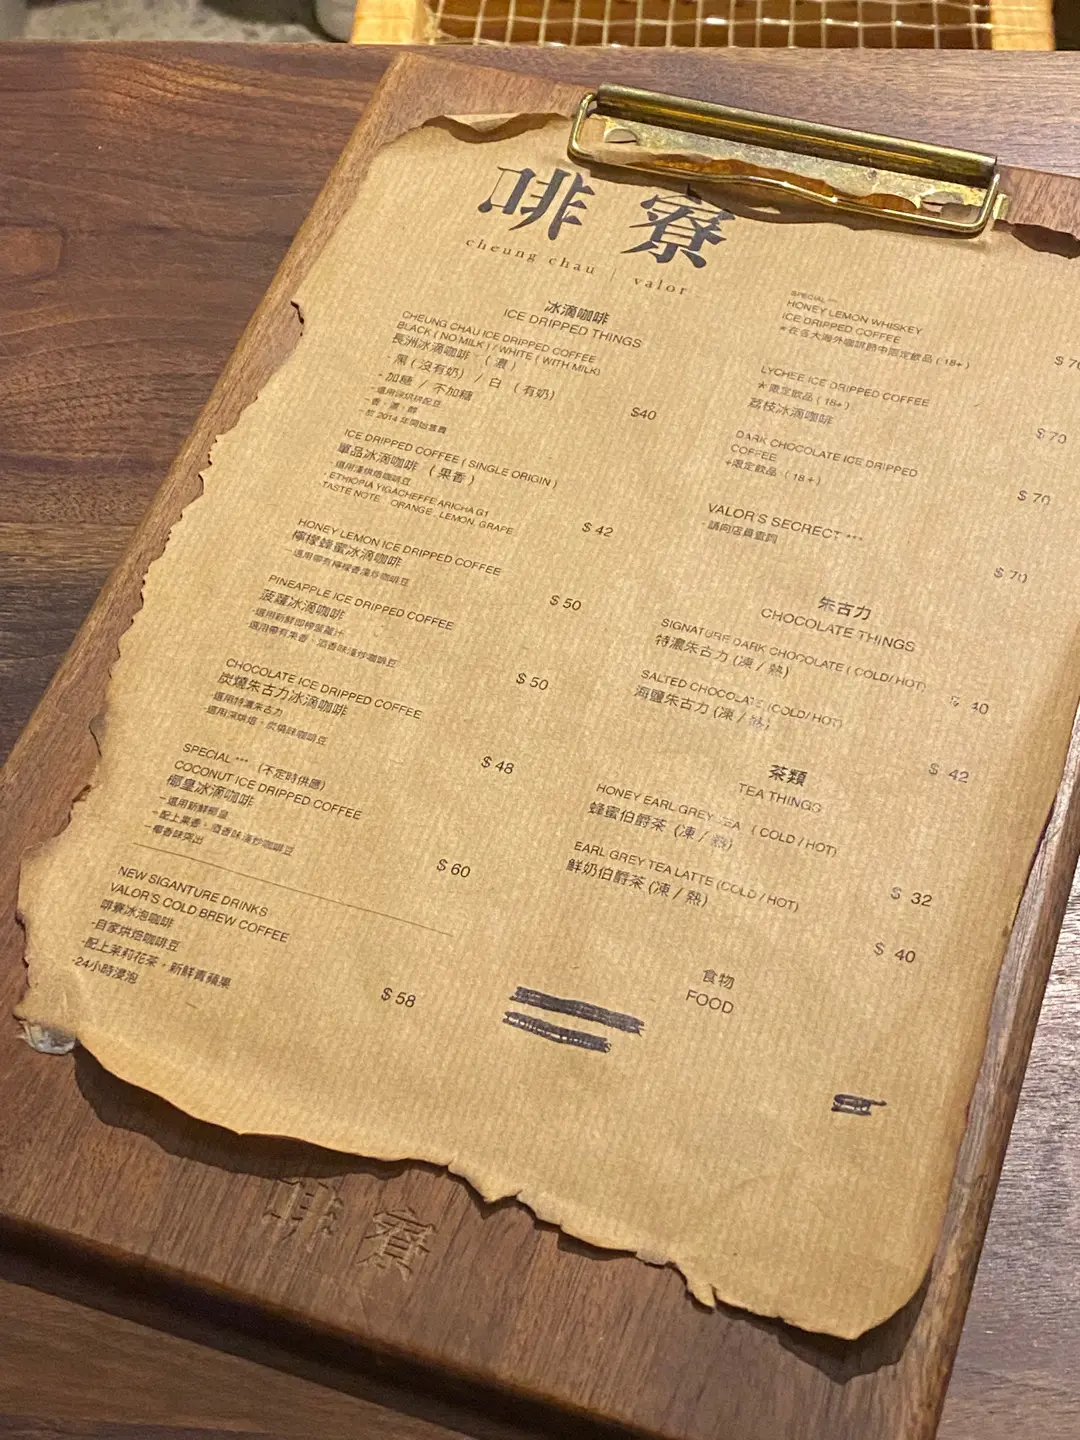 啡寮
cheung chau | valor
冰滴咖啡
ICE DRIPPED THINGS
CHEUNG CHAU ICE DRIPPED COFFEE
BLACK ( NO MILK ) / WHITE ( WITH MILK)
長洲冰滴咖啡 （濃）
- 黑 ( 沒有奶） / 白 （ 有奶)
- 加糖 / 不加糖
- 選用深烘焙配豆
- 香，濃，醇
- 於 2014 年開始售賣
$40
ICE DRIPPED COFFEE ( SINGLE ORIGIN )
單品冰滴咖啡 （ 果香 ）
- 選用淺烘焙咖啡豆
- ETHIOPIA YIGACHEFFE ARICHA G1
TASTE NOTE : ORANGE , LEMON, GRAPE
$ 42
HONEY LEMON ICE DRIPPED COFFEE
檸檬蜂蜜冰滴咖啡
- 選用帶有檸檬香淺炒咖啡豆
$ 50
PINEAPPLE ICE DRIPPED COFFEE
菠蘿冰滴咖啡
-選用新鮮即榨菠蘿汁
-選用帶有果香，酒香味淺炒咖啡豆
$ 50
CHOCOLATE ICE DRIPPED COFFEE
炭燒朱古力冰滴咖啡
-選用特濃朱古力
-選用深烘焙，炭燒味咖啡豆
$ 48
SPECIAL *** （不定時供應）
COCONUT ICE DRIPPED COFFEE
椰皇冰滴咖啡
- 選用新鮮椰皇
- 配上果香，酒香味淺炒咖啡豆
- 椰香味突出
$ 60
NEW SIGANTURE DRINKS
VALOR'S COLD BREW COFFEE
啡寮冰泡咖啡
-自家烘焙咖啡豆
-配上茉莉花茶，新鮮青蘋果
-24小時浸泡
$ 58
SPECIAL
HONEY LEMON WHISKEY
ICE DRIPPED COFFEE
★在各大海外咖啡節中限定飲品 ( 18+ )
$ 70
LYCHEE ICE DRIPPED COFFEE
★限定飲品 ( 18+ )
荔枝冰滴咖啡
$ 70
DARK CHOCOLATE ICE DRIPPED
COFFEE
★限定飲品 ( 18+ )
$ 70
VALOR'S SECRECT ***
- 請向店員查詢
$ 70
朱古力
CHOCOLATE THINGS
SIGNATURE DARK CHOCOLATE ( COLD/ HOT)
特濃朱古力 (凍 / 熱)
$ 40
SALTED CHOCOLATE (COLD/ HOT)
海鹽朱古力 (凍 / 熱)
$ 42
茶類
TEA THINGS
HONEY EARL GREY TEA ( COLD / HOT)
蜂蜜伯爵茶 (凍 / 熱)
$ 32
EARL GREY TEA LATTE (COLD / HOT)
鮮奶伯爵茶 (凍 / 熱)
$ 40
食物
FOOD
啡寮